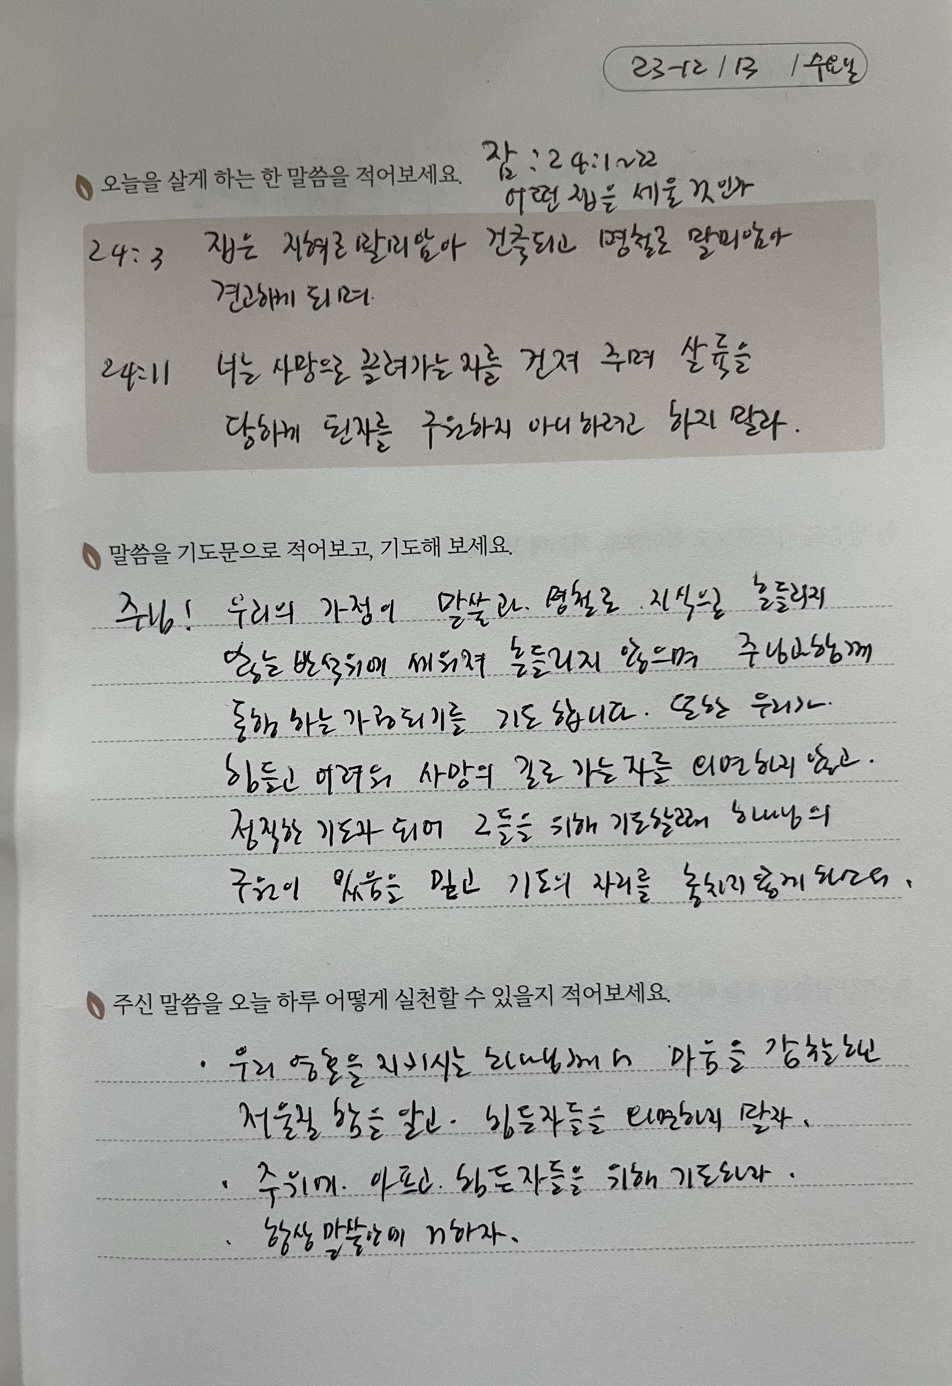 23-12 / 13 / 수요일
잠 : 24:1~22
오늘을 살게 하는 한 말씀을 적어보세요.
어떤 집을 세울 것인가
24:3 집은 지혜로 말미암아 건축되고 명철로 말미암아
견고하게 되며
24:11 너는 사망으로 끌려가는 자를 건져 주며 살륙을
당하게 된자를 구원하지 아니하려고 하지 말라.
말씀을 기도문으로 적어보고, 기도해 보세요.
주님! 우리의 가정이 말씀과 명철로 지식으로 흔들리지
않는 반석위에 세워져 흔들리지 않으며 주님과함께
동행 하는 가정되기를 기도 합니다. 또한 우리가
힘들고 어려워 사망의 길로 가는 자를 외면하지 않고.
정직한 기도자 되어 그들을 위해 기도할때 하나님의
구원이 있음을 믿고 기도의 자리를 놓치지 않게 하소서.
주신 말씀을 오늘 하루 어떻게 실천할 수 있을지 적어보세요.
· 우리 영혼을 지키시는 하나님께서 마음을 감찰하신
저울질 함을 알고. 힘든자들을 외면하지 말자.
· 주위에. 아프고. 힘든자들을 위해 기도하자.
· 항상 말씀안에 거하자.